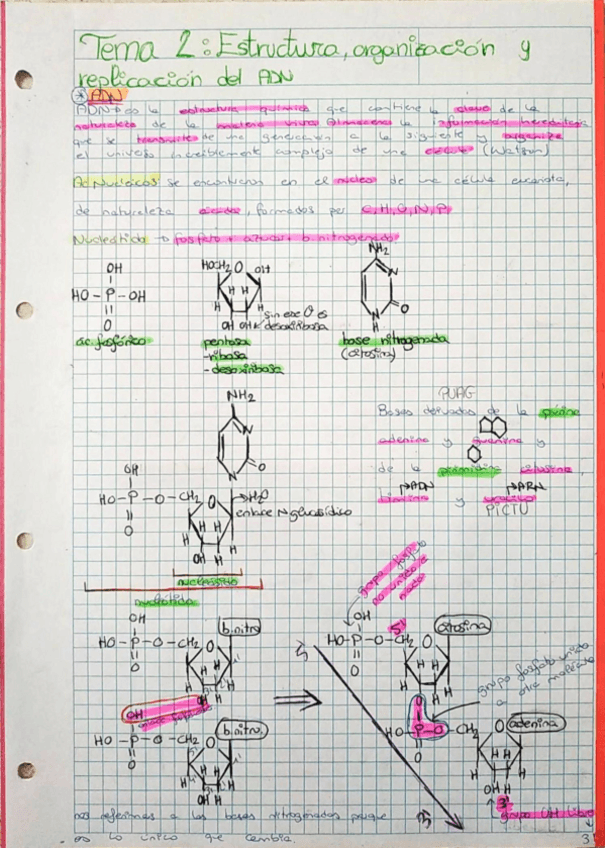 Tema 2: Estructura, organización y
replicación del ADN
ADN → es la estructura química que contiene la clave de la
naturaleza de la materia viva. Almacena la información hereditaria
que se transmite de una generación a la siguiente y organiza
el universo increíblemente complejo de una célula (Watson)
Ac. Nucleicos se encuentran en el núcleo de una célula eucariota,
de naturaleza ácida, formados por C, H, O, N, P
Nucleótido → fosfato + azúcar + b. nitrogenada
OH
HO - P - OH
O
ác. fosfórico
HOCH2 O OH
H H
H H
OH OH
sin ese O es
desoxirribosa
pentosa
-ribosa
-desoxirribosa
NH2
N
O
N
H
base nitrogenada
(citosina)
PUAG
Bases derivadas de la purina
adenina y guanina y
de la pirimidina citosina,
→ADN →ARN
timina y uracilo
PICTU
NH2
N
O
N
OH
HO - P - O - CH2 O
O
H H
H H
OH H
→H2O
enlace N-glucosídico
nucleósido
nucleótido
OH
HO - P - O - CH2 O
O
b.nitro
H H
H H
OH H
OH
enlace fosfodiéster
HO - P - O - CH2 O
O
b.nitro.
H H
H H
OH H
grupo fosfato
no unido a
nada
5'
OH
HO - P - O - CH2 O
O
5'
citosina
H H
H H
O H
HO - P - O - CH2 O
O
adenina
H H
H H
OH H
grupo fosfato unido
a otra molécula
3'
3'
grupo OH libre
nos referimos a las bases nitrogenadas porque
es lo único que cambia.
3